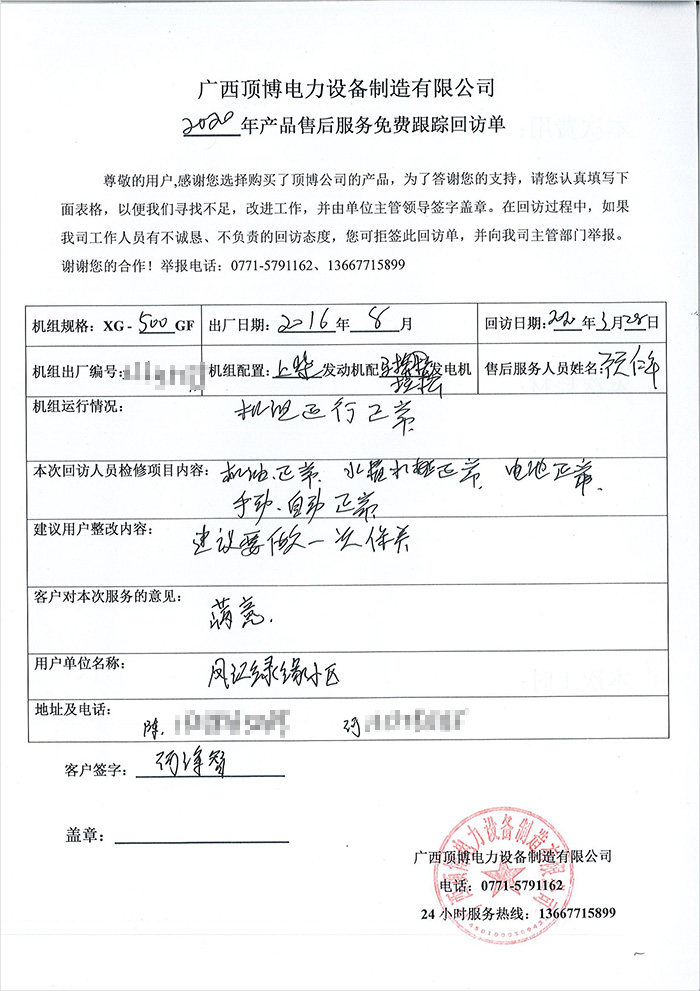 广西顶博电力设备制造有限公司
2020年产品售后服务免费跟踪回访单
尊敬的用户,感谢您选择购买了顶博公司的产品，为了答谢您的支持，请您认真填写下
面表格，以便我们寻找不足，改进工作，并由单位主管领导签字盖章。在回访过程中，如果
我司工作人员有不诚恳、不负责的回访态度，您可拒签此回访单，并向我司主管部门举报。
谢谢您的合作！举报电话：0771-5791162、13667715899
机组规格：XG-500GF 出厂日期：2016年8月 回访日期：2020年3月28日
机组出厂编号： 机组配置：上柴发动机配 发电机 售后服务人员姓名：
机组运行情况： 机组运行正常
本次回访人员检修项目内容：机油、正常、水箱水 正常、电池正常、
手动、自动正常
建议用户整改内容： 建议要做一次保养
客户对本次服务的意见：
满意.
用户单位名称： 凤江绿缘小区
地址及电话：
陈. 何
客户签字：何
盖章：
广西顶博电力设备制造有限公司
电话：0771-5791162
24小时服务热线：13667715899